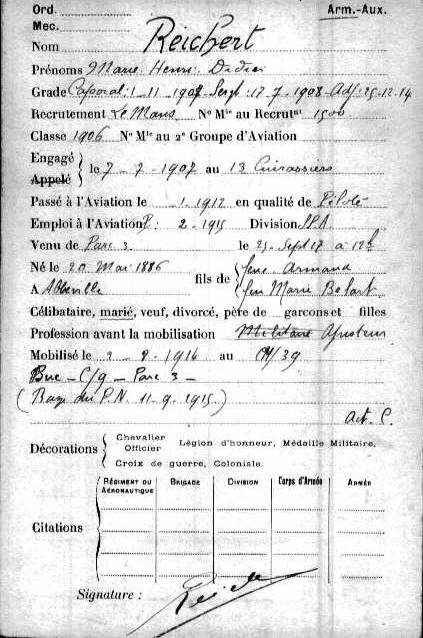 Ord. Arm.-Aux.
Mec.
Nom Reichert
Prénoms Marie Henri Didier
Grade Caporal: 1-11-1907 Sergt: 17-7-1908 Adj: 25-12-14
Recrutement Le Mans Nº Mle au Recrutnt 1500
Classe 1906 Nº Mle au 2e Groupe d'Aviation
Engagé
Appelé le 7-7-1907 au 13 Cuirassiers
Passé à l'Aviation le 1-1912 en qualité de Pilote
Emploi à l'Aviation P: 2-1915 Division SPA
Venu de Parc 3 le 25 Sept 17 à 12h
Né le 20 Mai 1886 fils de feu Armand
A Abbeville feu Marie
Célibataire, marié, veuf, divorcé, père de garçons et filles
Profession avant la mobilisation Militaire Ajusteur
Mobilisé le 2-8-1914 au /39
Buc - C/9 - Parc 3 -
( du P.N. 11-9-1915.)
Act. C.
Décorations Chevalier Officier Légion d'honneur, Médaille Militaire,
Croix de guerre, Coloniale.
Régiment ou Aéronautique Brigade Division Corps d'Armée Armée
Citations
Signature :